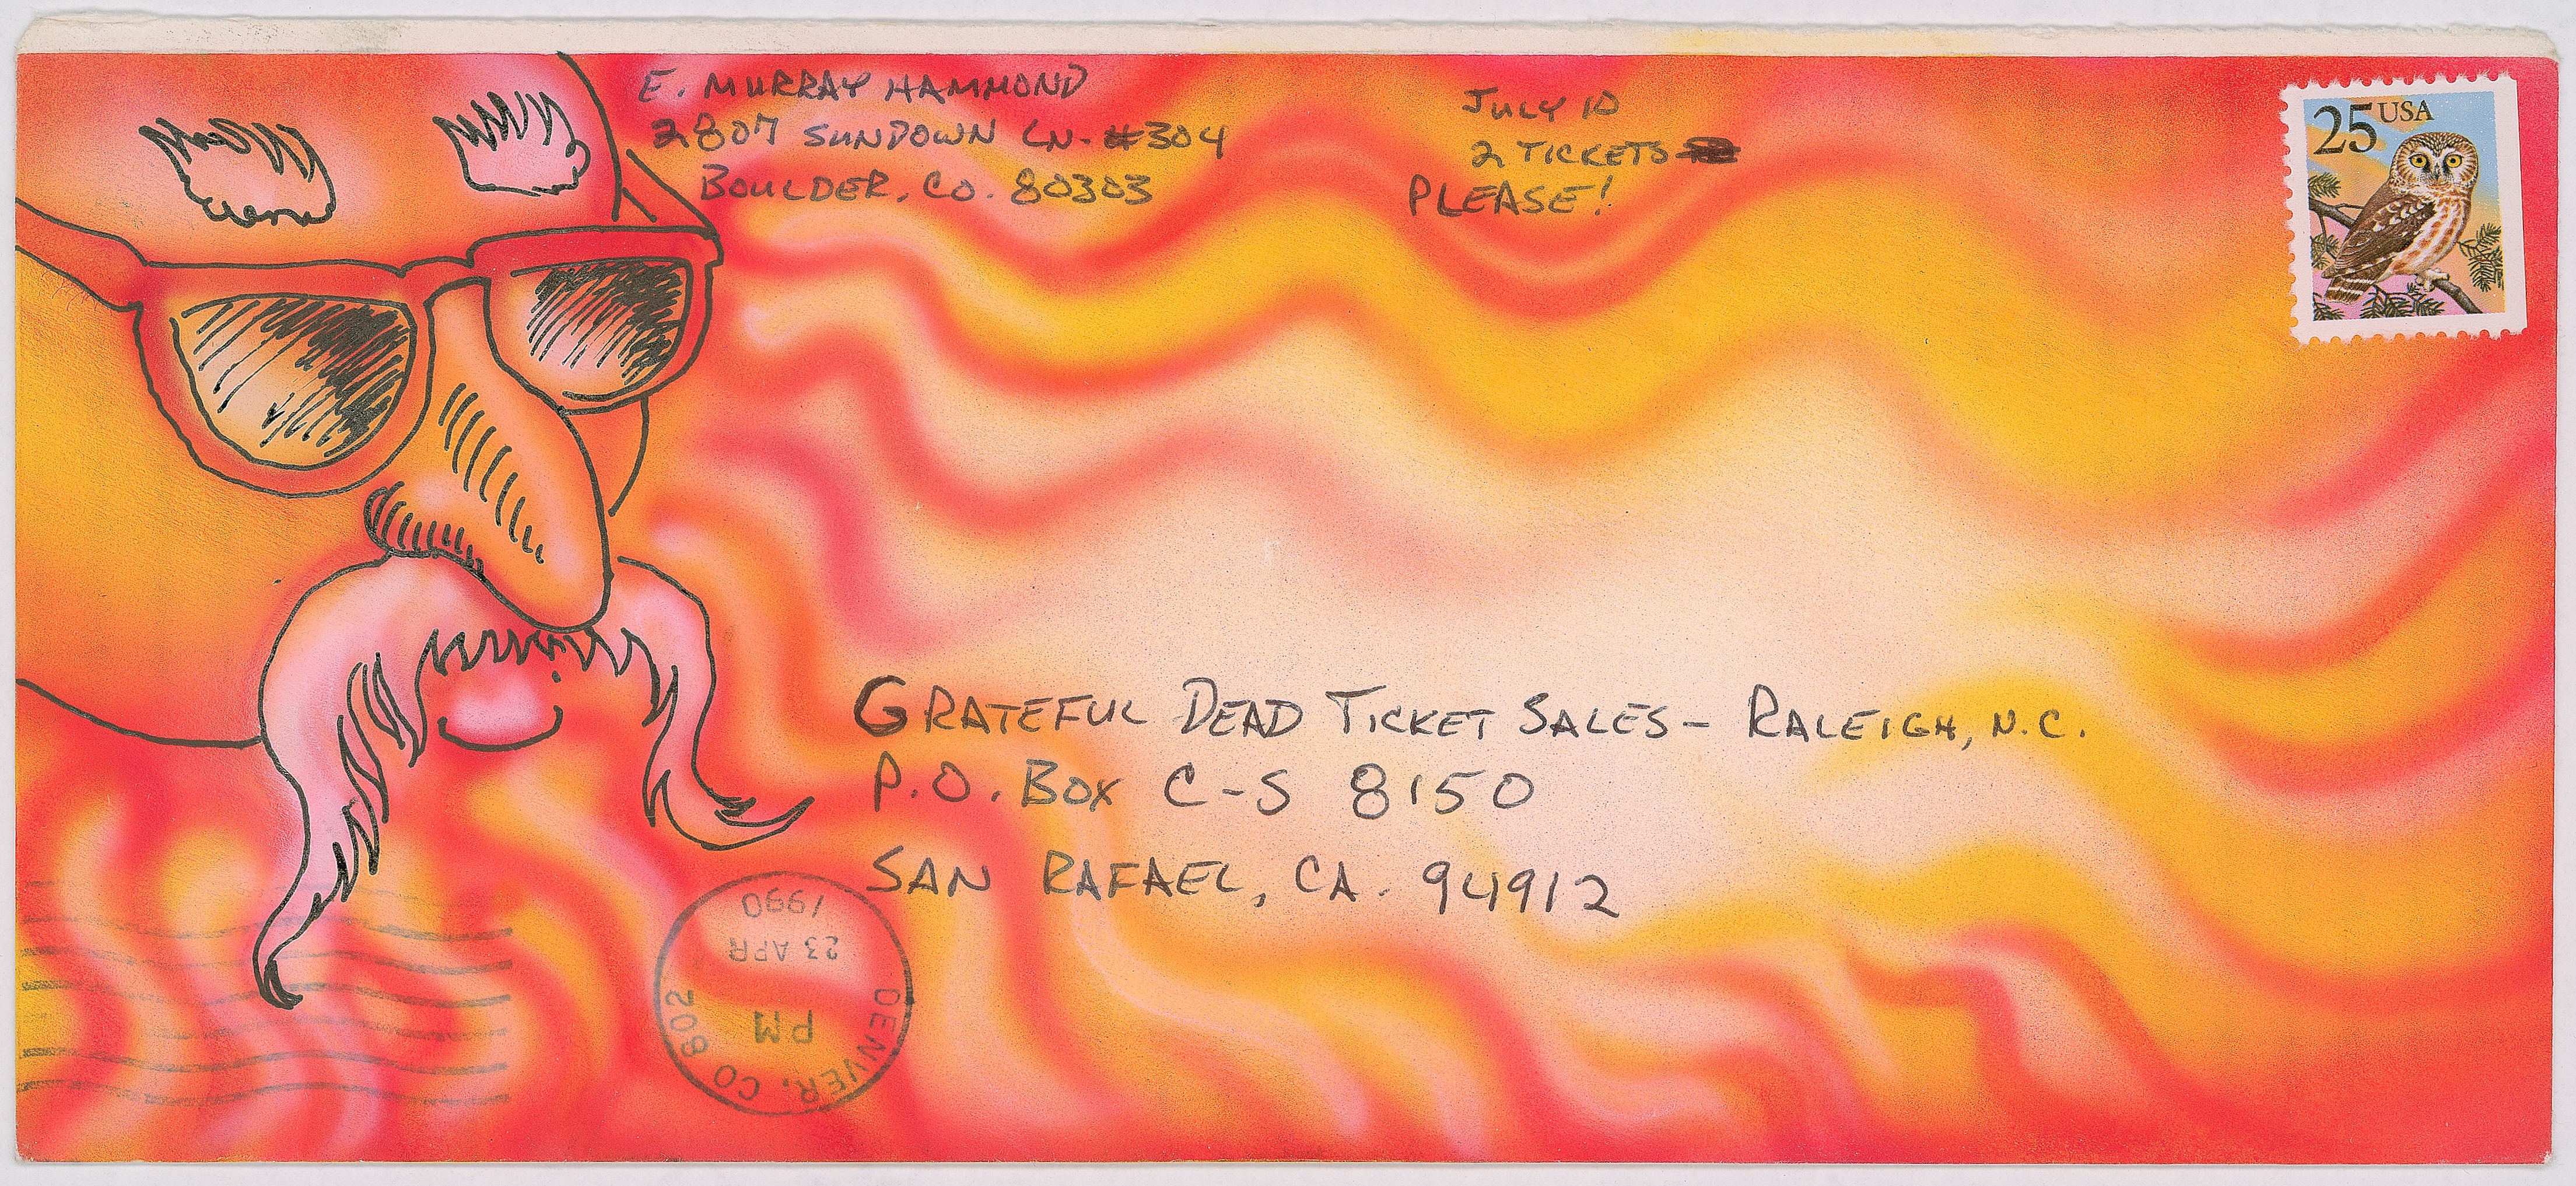 E. MURRAY HAMMOND
2807 SUNDOWN LN. #304
BOULDER, CO. 80303
JULY 10
2 TICKETS
PLEASE!
25 USA
GRATEFUL DEAD TICKET SALES - RALEIGH, N.C.
P.O. BOX C-S 8150
SAN RAFAEL, CA. 94912
DENVER, CO 802
PM
23 APR
1990